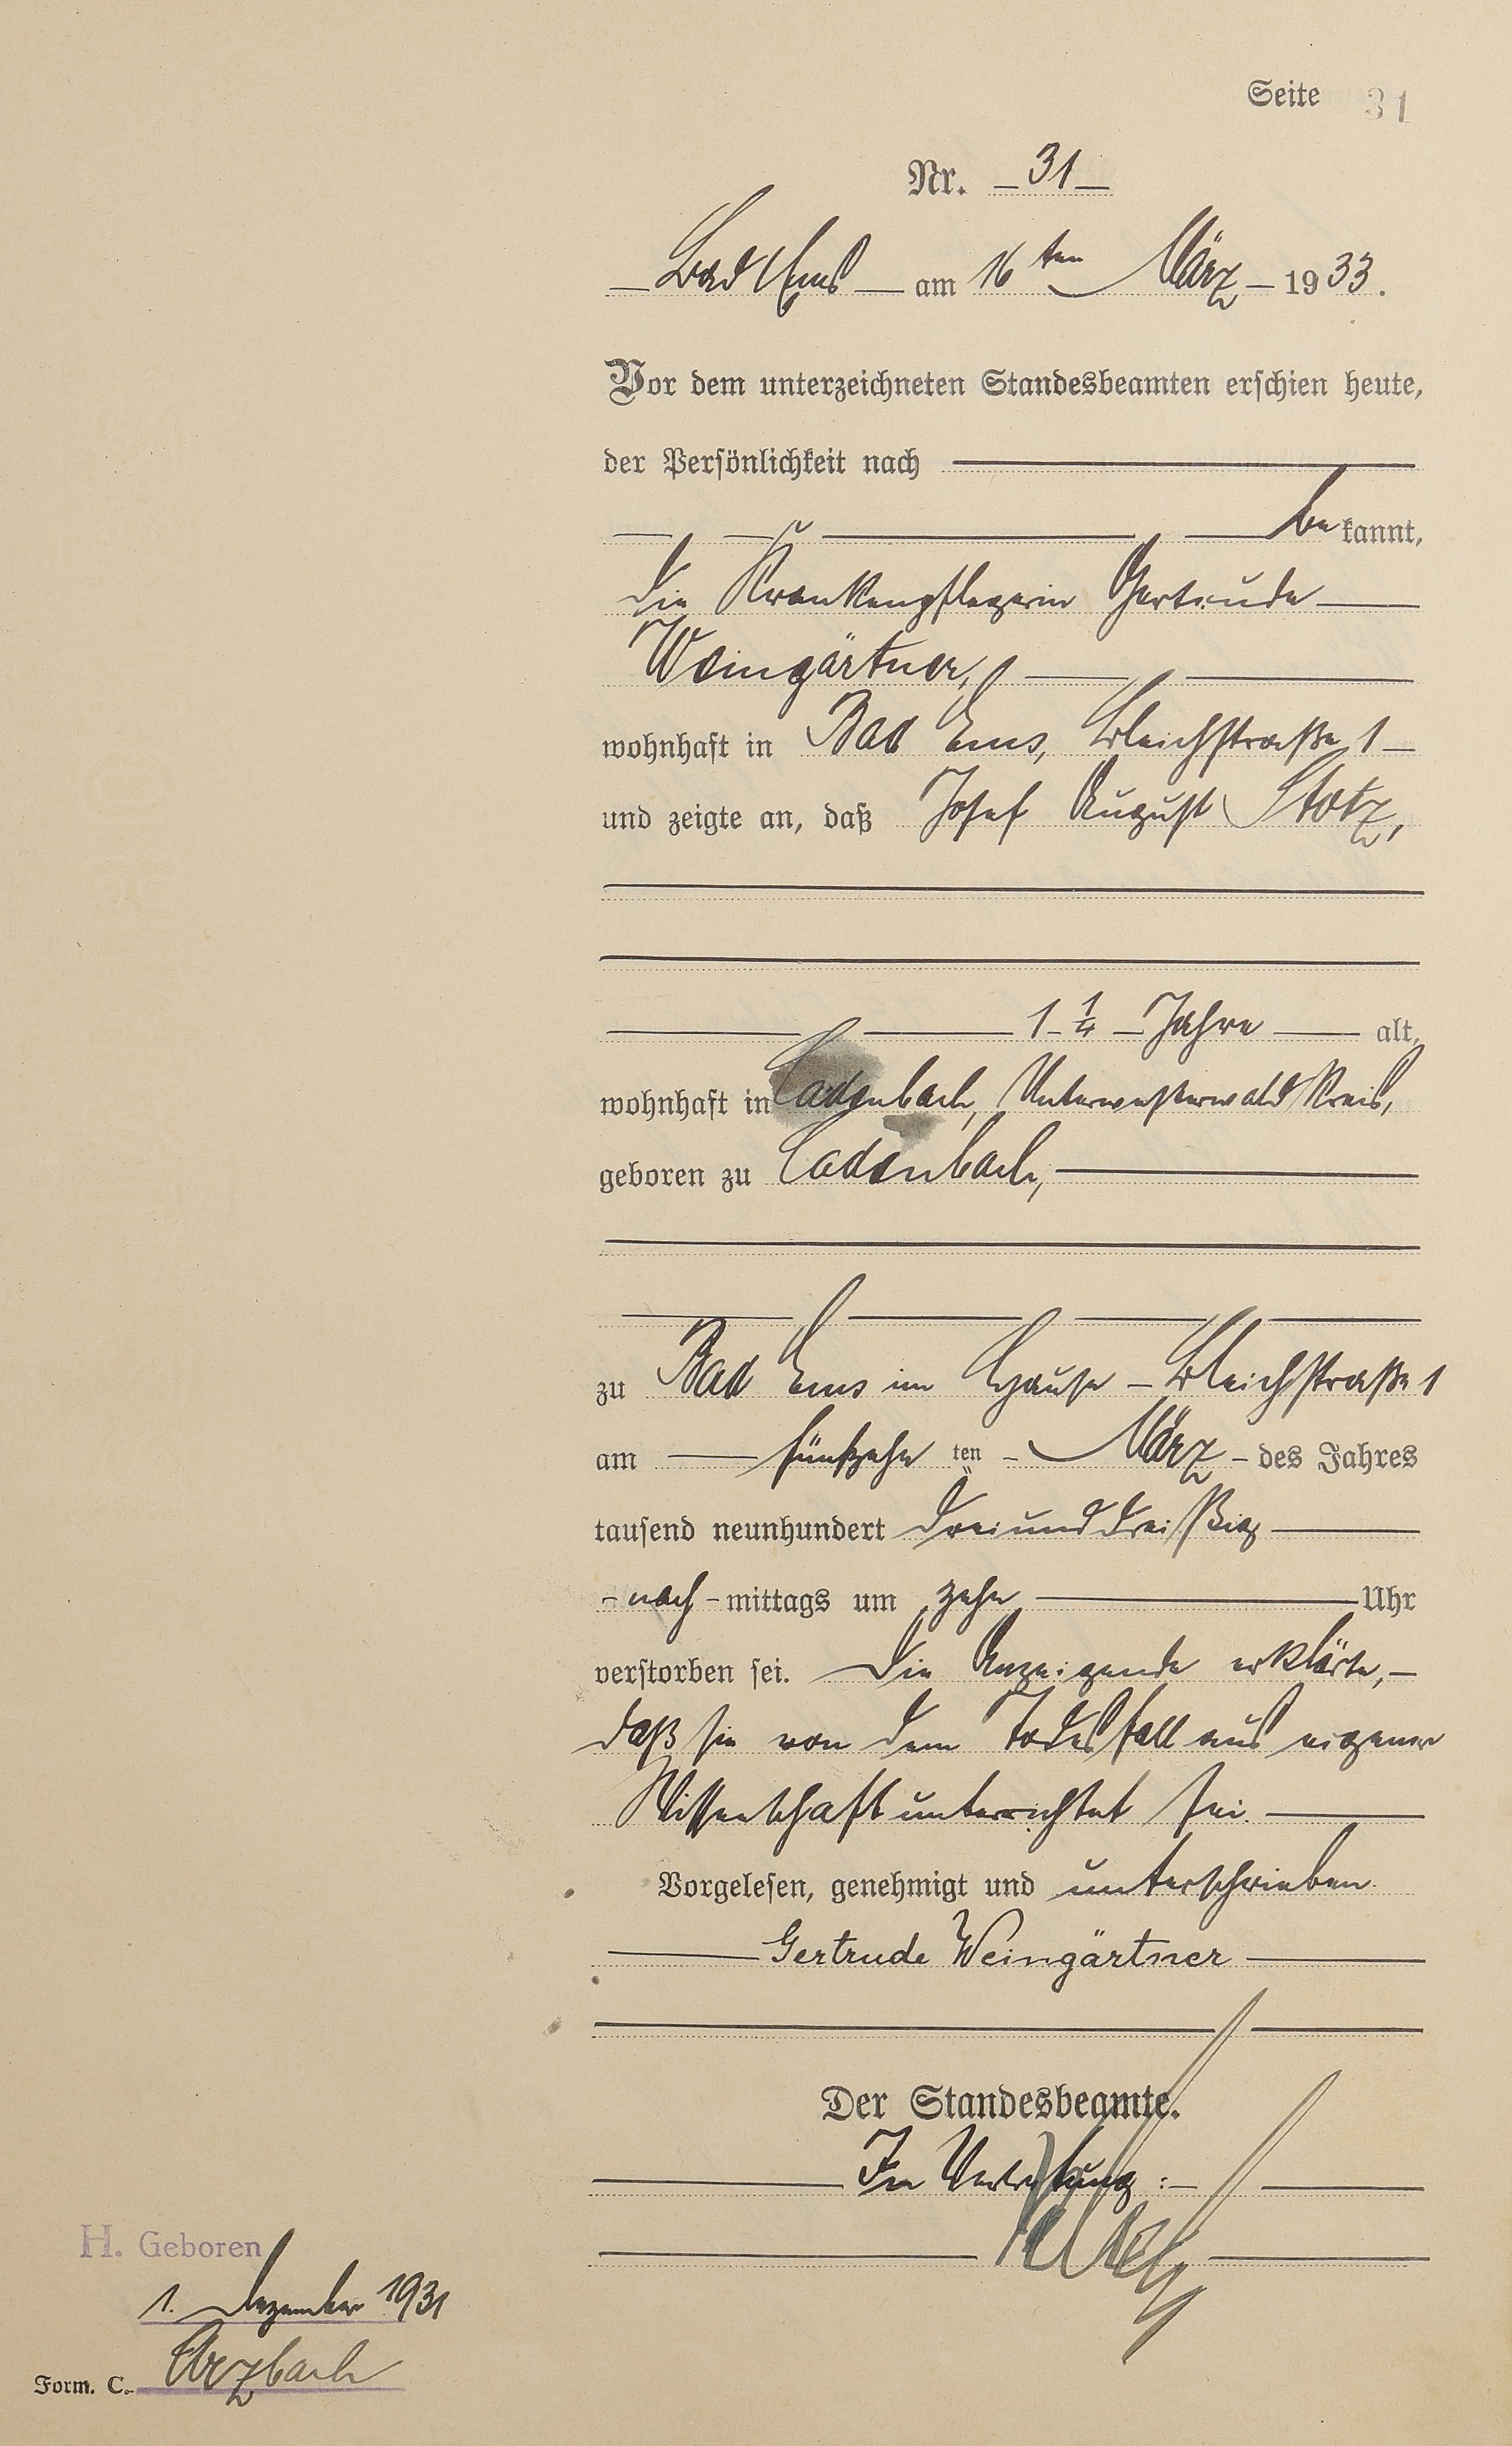 Seite 31
Nr. 31
Bad Ems am 16ten März 1933.
Vor dem unterzeichneten Standesbeamten erschien heute,
der Persönlichkeit nach
bekannt,
die Krankenpflegerin Gertrude
Weingärtner,
wohnhaft in Bad Ems, Bleichstraße 1
und zeigte an, daß Josef August Stotz,
1 1/4 Jahre alt,
wohnhaft in Cadenbach, Unterwesterwald Kreis,
geboren zu Cadenbach,
zu Bad Ems im Hause Bleichstraße 1
am fünfzehnten März des Jahres
tausend neunhundert dreiunddreißig
nachmittags um zehn Uhr
verstorben sei. Die Anzeigende erklärte,
daß sie von dem Todesfall aus eigener
Wissenschaft unterrichtet sei.
Vorgelesen, genehmigt und unterschrieben.
Gertrude Weingärtner
Der Standesbeamte.
In Vertretung:
H. Geboren
1. Dezember 1931
Form. C. Arzbach